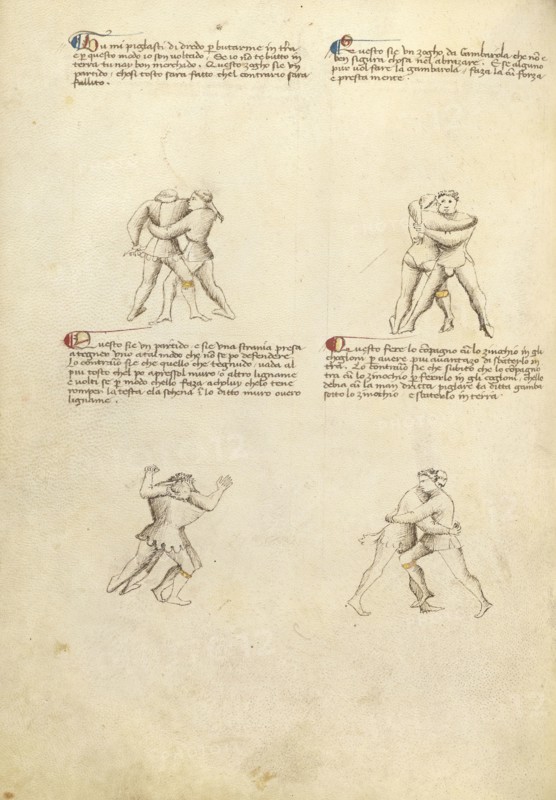 Tu mi piglasti di dredo p butarme in tr̄a
e p questo modo io son voltado. Se io nō te butto in
terra tu nai bon merchado. Questo zogho sie un
partido. chosi tosto sara fatto chel contrario sara
fallito.
Questo sie un zogho da Gambarola che nō e
ben sigura chosa nel abrazare. E se alguno
pur vol fare la gambarola faza la cū forza
e presta mente.
Questo sie un partido e sie una strania presa
a tegner uno a tal modo che nō se po defendere.
Lo contrario sie che quello che tegnudo vada al
piu tosto chel po apresso muro o altro ligname
e volti se p modo chello faza a choluy chelo tene
romper la testa e la schena ī lo ditto muro overo
ligname.
Questo fere lo cōpagno cū lo zinochio in gli
chogloni p avere piu avantazo di sbaterlo in
tr̄a. Lo contrario sie che subito che lo cōpagno
tra cū lo zinochio p ferirlo in gli coglioni, chello
debia cū la man dritta piglare la ditta gamba
sotto lo zinochio e sbaterlo in terra.